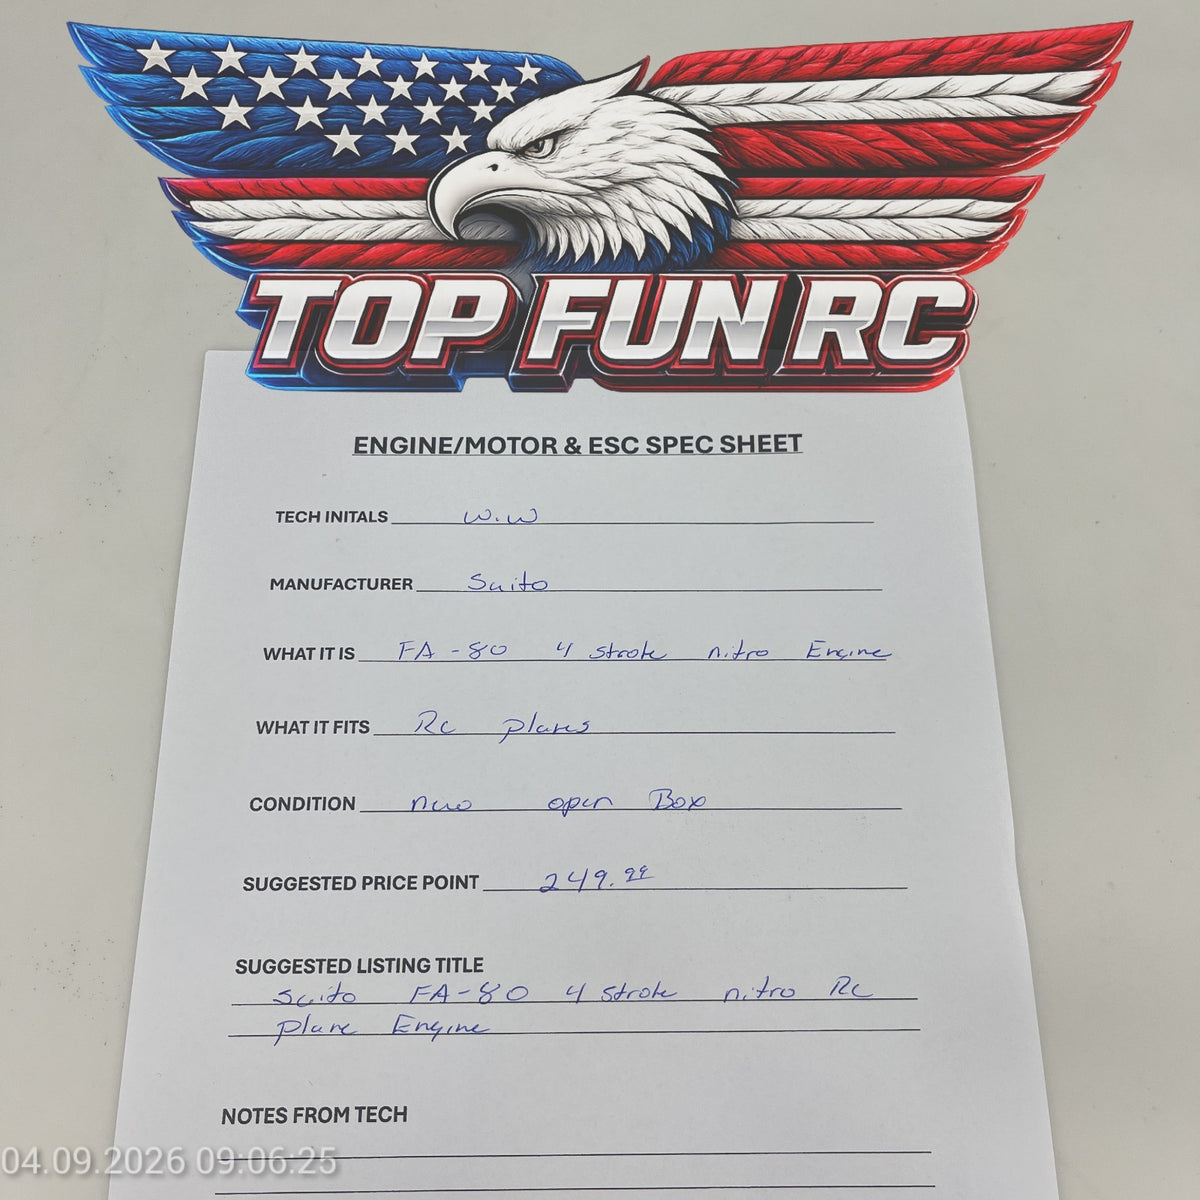 TOP FUN RC
ENGINE/MOTOR & ESC SPEC SHEET
TECH INITALS W.W
MANUFACTURER Saito
WHAT IT IS FA-80 4 stroke nitro Engine
WHAT IT FITS Rc planes
CONDITION new open Box
SUGGESTED PRICE POINT 249.99
SUGGESTED LISTING TITLE
Saito FA-80 4 stroke nitro Rc
plane Engine
NOTES FROM TECH
04.09.2026 09:06:25